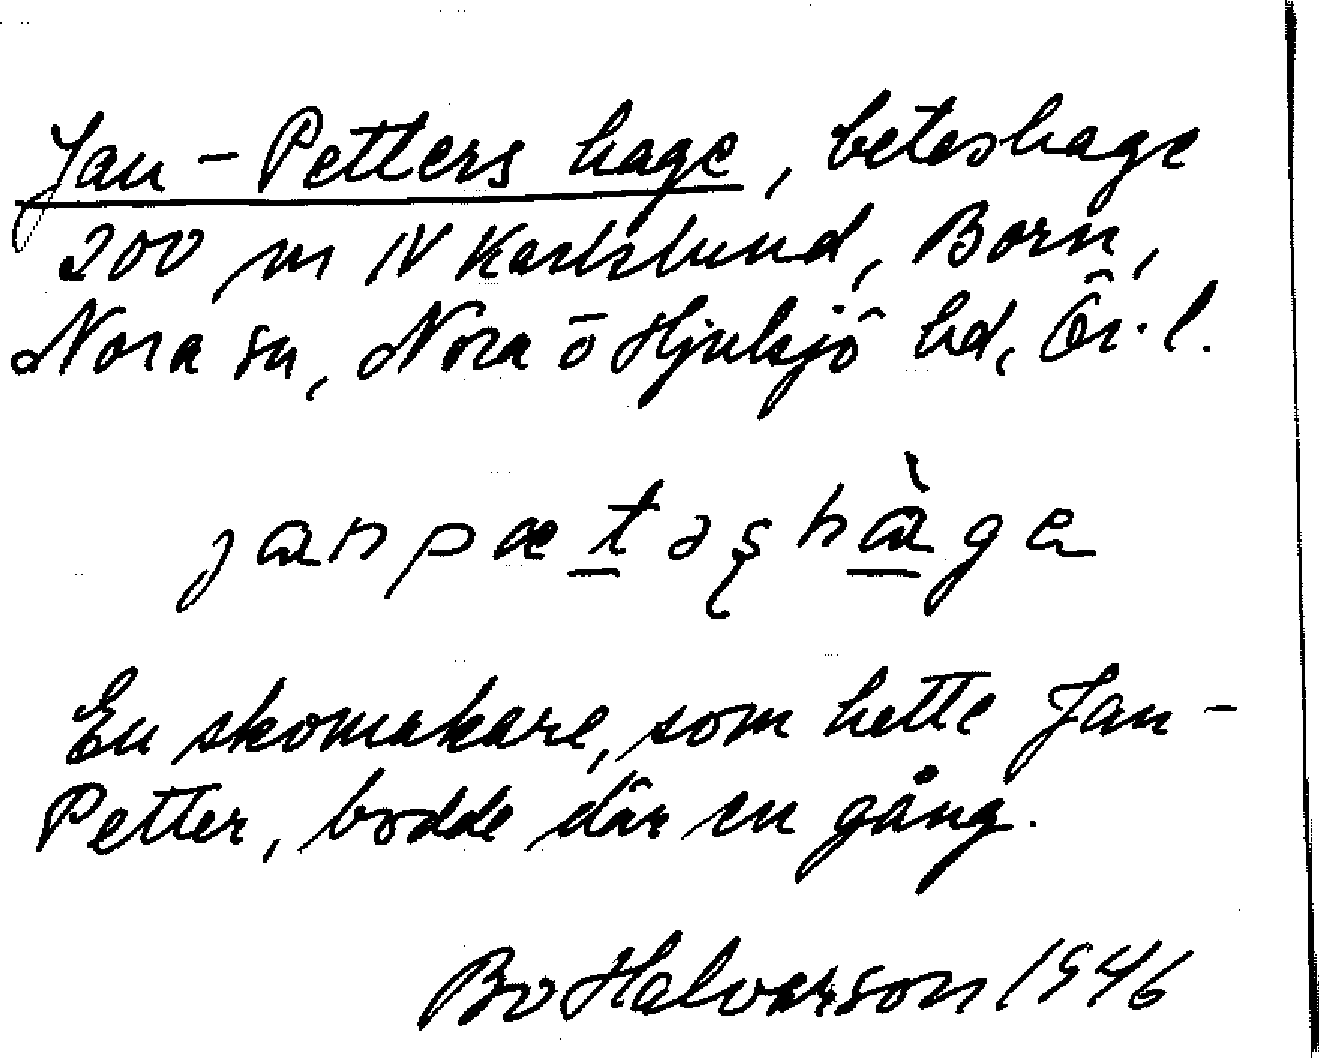 Jan-Petters hage, beteshage
200 m N Karlslund, Born,
Nora sn, Nora o Hjulsjö hd, Ör. l.
janpætəshàge
En skomakare, som hette Jan-
Petter, bodde där en gång.
Bo Halvarson 1946